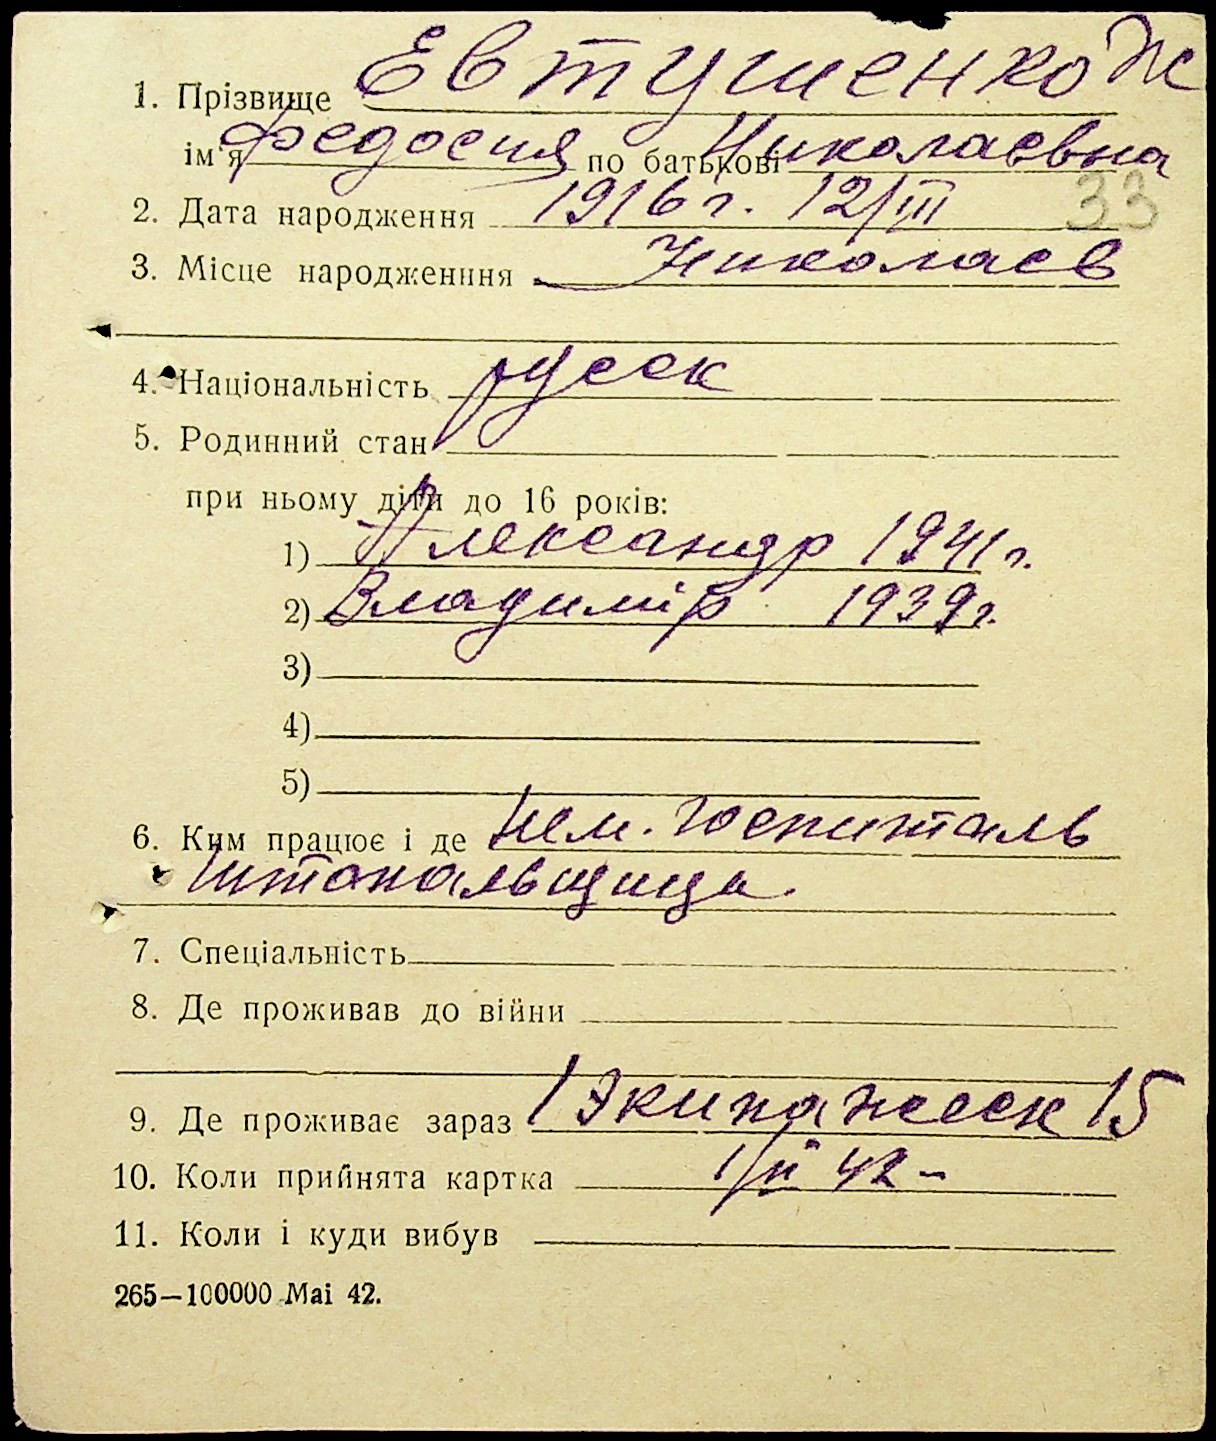 1. Прізвище Евтушенко Ж
ім'я Федосия по батькові Николаевна
2. Дата народження 1916 г. 12/III
33
3. Місце народженння Николаев
4. Національність русск
5. Родинний стан
при ньому діти до 16 років:
1) Александр 1941 г.
2) Владимір 1939 г.
3)
4)
5)
6. Ким працює і де Нем. госпиталь
штопальщица
7. Спеціальність
8. Де проживав до війни
9. Де проживає зараз 1 Экипажеск 15
10. Коли прийнята картка 42 –
11. Коли і куди вибув
265—100000 Mai 42.